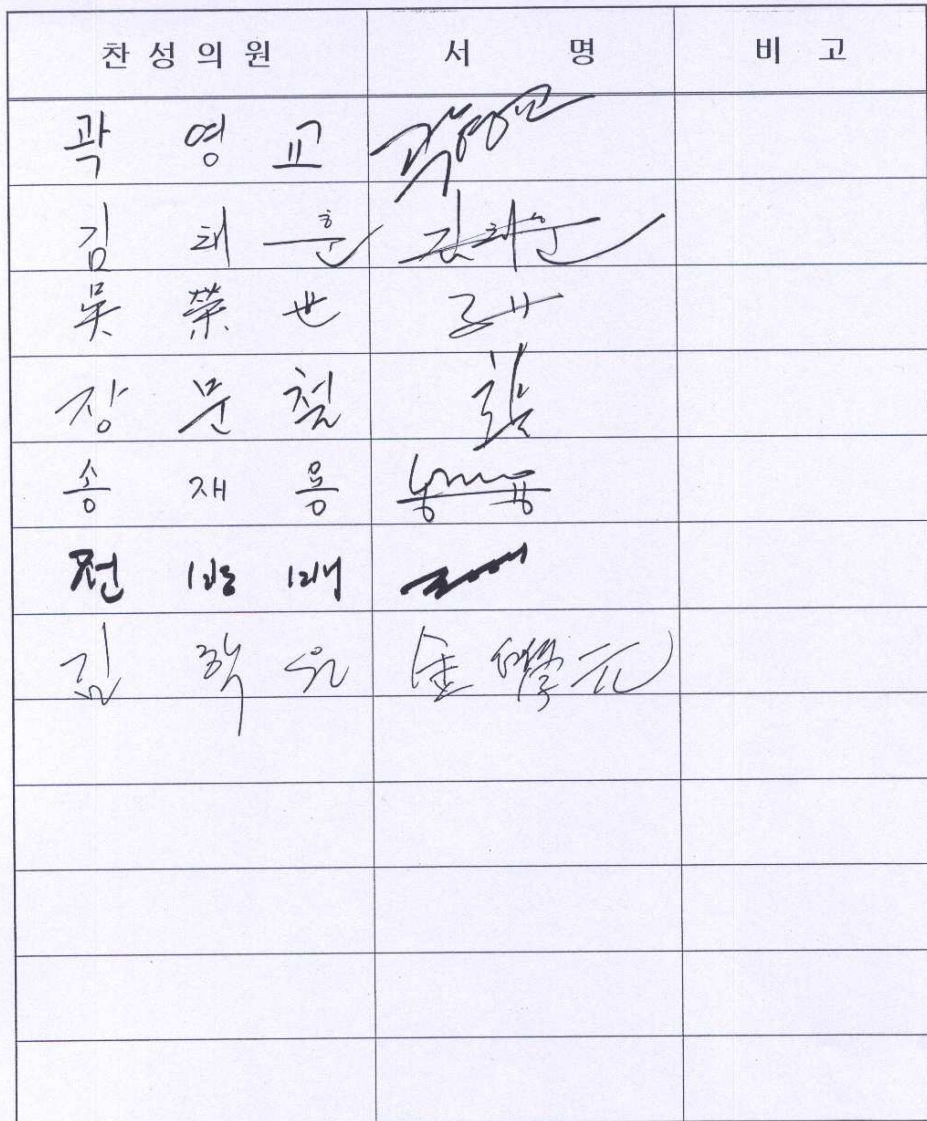 찬성의원 서 명 비 고
곽 영 교 곽영교
김 태 훈 김태훈
吴 榮 世
장 문 철
송 재 용
전
김 학 원 金學元